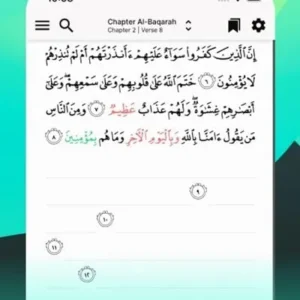 Chapter Al-Baqarah
Chapter 2 | Verse 8
إِنَّ ٱلَّذِينَ كَفَرُوا۟ سَوَآءٌ عَلَيْهِمْ ءَأَنذَرْتَهُمْ أَمْ لَمْ تُنذِرْهُمْ
لَا يُؤْمِنُونَ ٦ خَتَمَ ٱللَّهُ عَلَىٰ قُلُوبِهِمْ وَعَلَىٰ سَمْعِهِمْ ۖ وَعَلَىٰٓ
أَبْصَٰرِهِمْ غِشَٰوَةٌ ۖ وَلَهُمْ عَذَابٌ عَظِيمٌ ٧ وَمِنَ ٱلنَّاسِ
مَن يَقُولُ ءَامَنَّا بِٱللَّهِ وَبِٱلْيَوْمِ ٱلْءَاخِرِ وَمَا هُم بِمُؤْمِنِينَ ٨
٩
١٠
١١
١٢